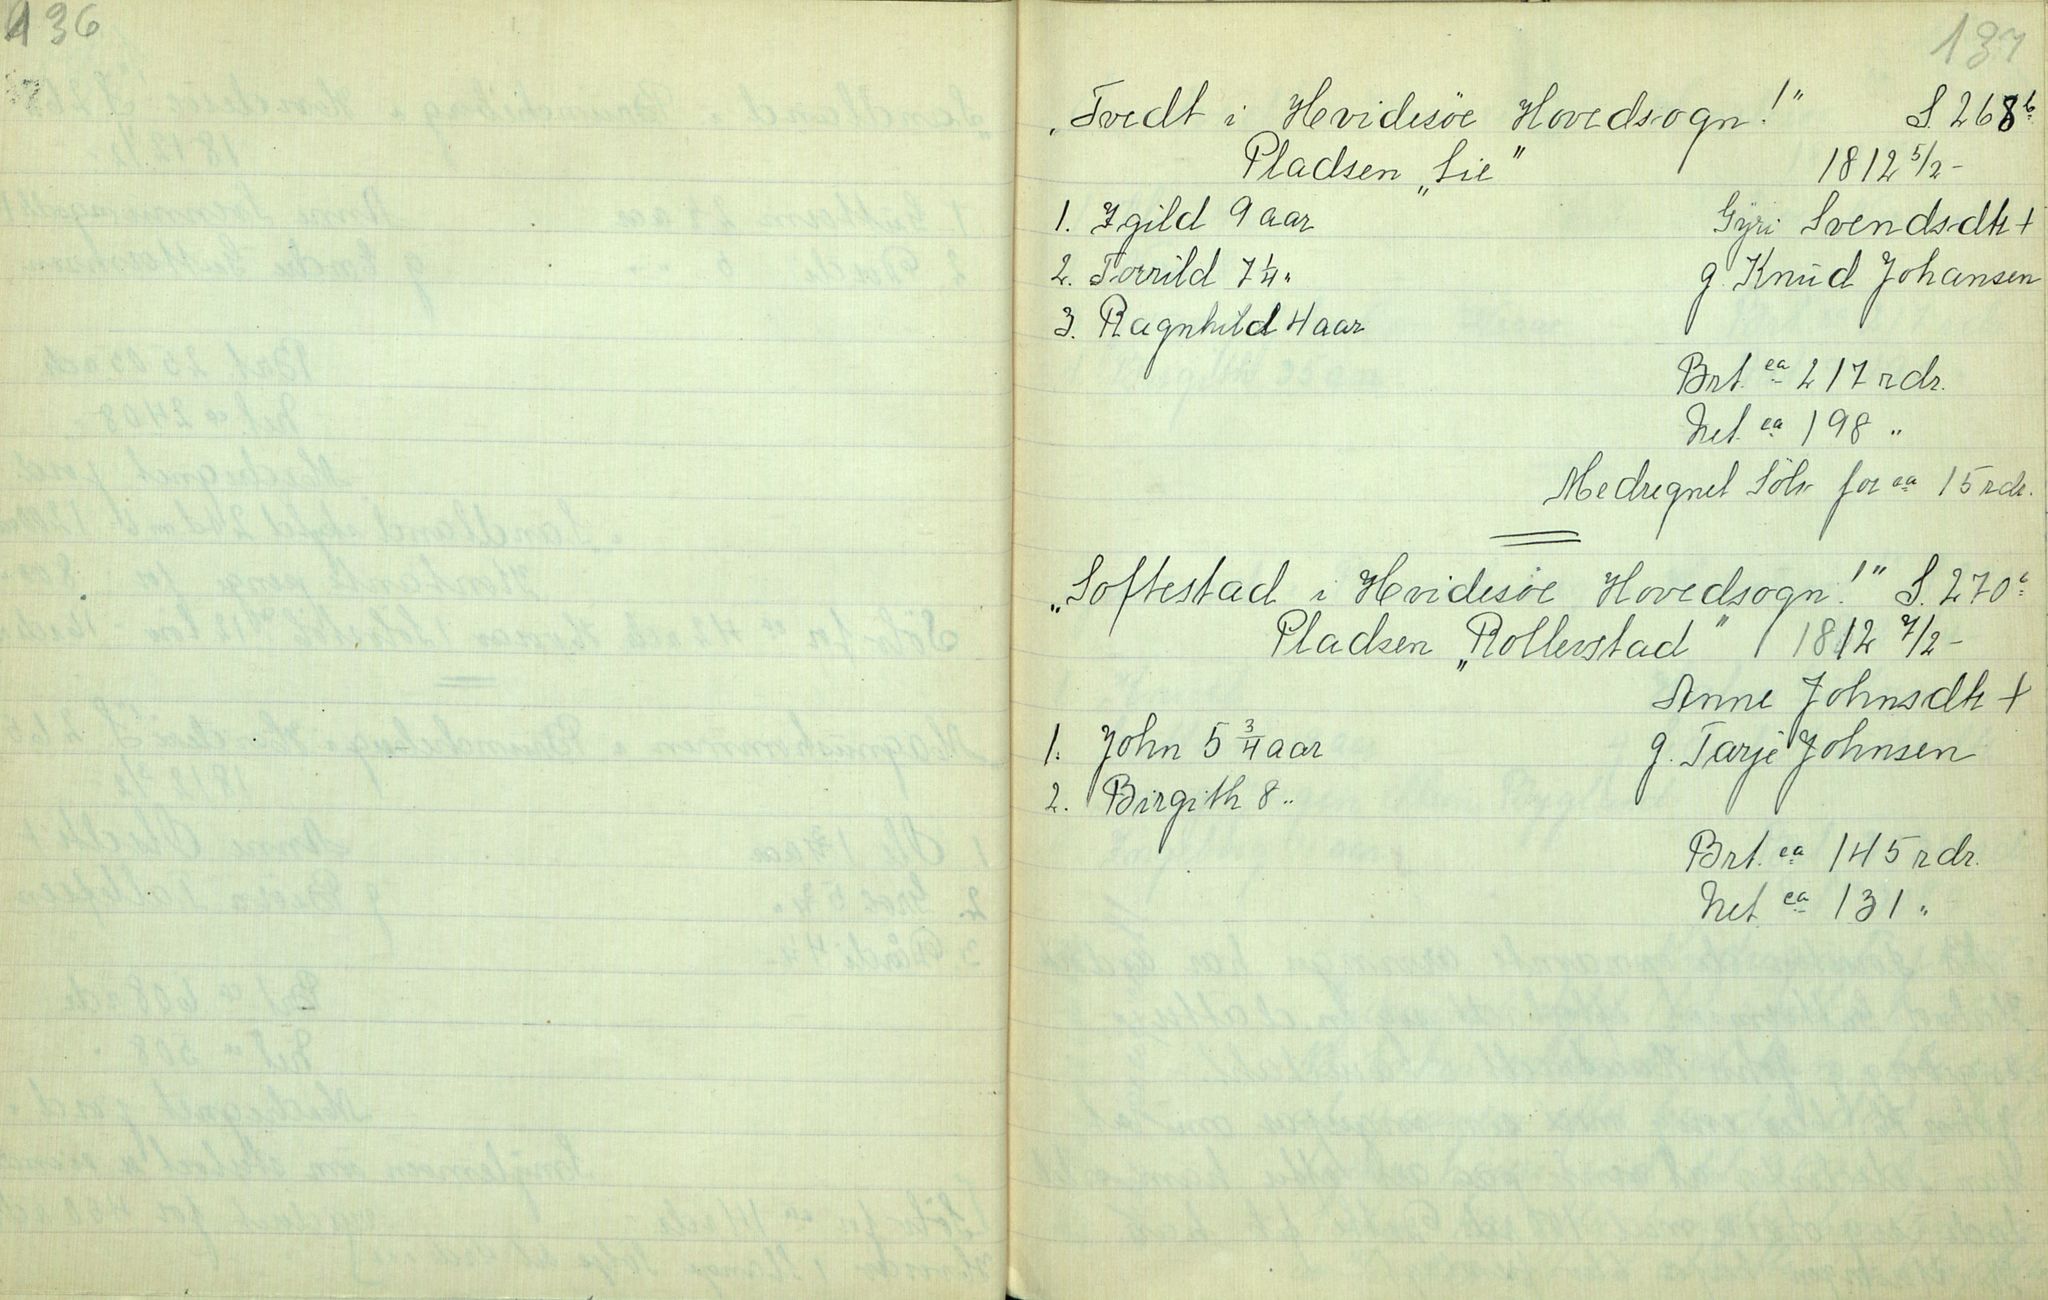 136
137
„Tvedt i Hvidesöe Hovedsogn!" S. 268b
Pladsen „Lie" 1812 5/2-
1. Igild 9 aar Gyri Svendsdtr +
2. Torrild 7 1/4 " g. Knud Johansen
3. Ragnhild 4 aar
Brt. ca 217 rdr.
Net ca 198 "
Medregnet Sölv for ca 15 rdr.
„Softestad i Hvidesöe Hovedsogn!" S. 270b
Pladsen „Rollerstad" 1812 7/2-
Anne Johnsdtr +
1. John 5 3/4 aar g. Tarje Johnsen
2. Birgith 8 "
Brt. ca 145 rdr.
Net ca 131 "